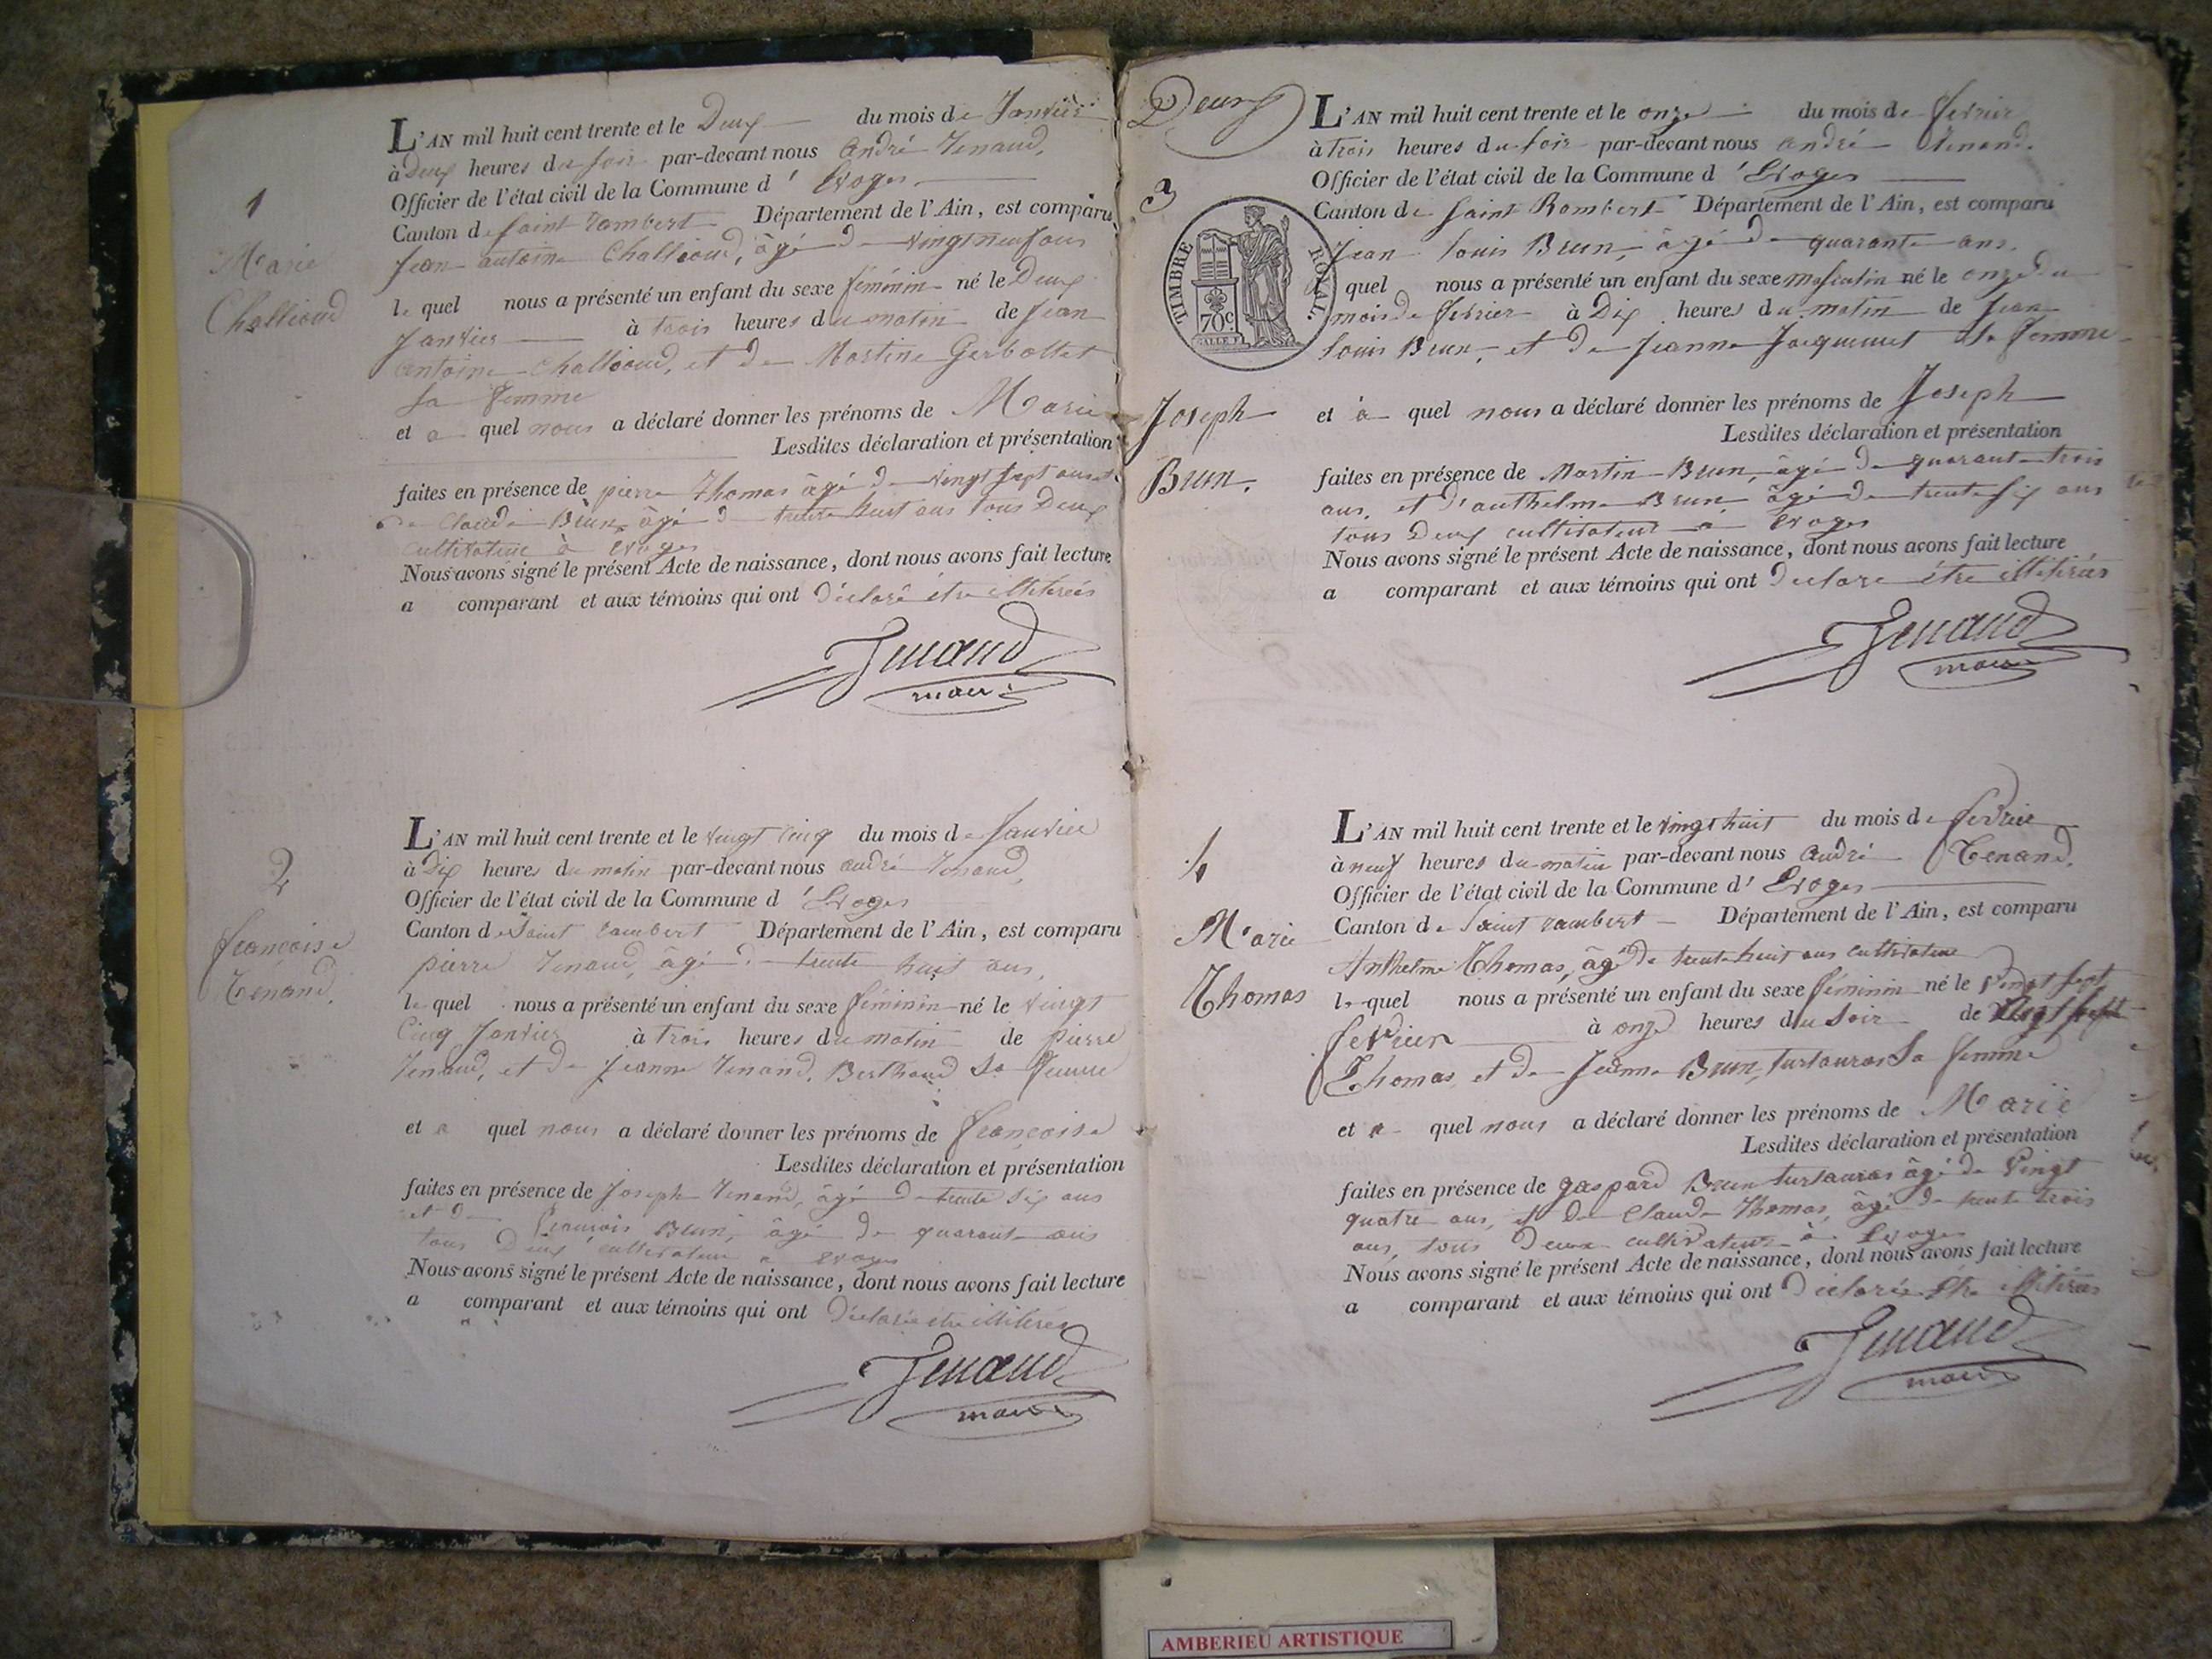 1
Marie
Challioud
L'AN mil huit cent trente et le Deux du mois de Janvier
à Deux heures du soir par-devant nous André Tenand,
Officier de l'état civil de la Commune d' Evoges
Canton de Saint Rambert Département de l'Ain, est comparu
Jean antoine Challioud, âgé de vingt neuf ans
le quel nous a présenté un enfant du sexe féminin né le Deux
Janvier à trois heures du matin de Jean
Antoine Challioud, et de Martine Gerbollet
sa femme
et a quel nous a déclaré donner les prénoms de Marie
Lesdites déclaration et présentation
faites en présence de pierre Thomas âgé de vingt sept ans et
de Claude Brun, âgé de trente huit ans tous Deux
cultivateur à Evoges
Nous avons signé le présent Acte de naissance, dont nous avons fait lecture
a comparant et aux témoins qui ont déclaré être illitérés
Tenand
maire
2
françoise
Tenand.
L'AN mil huit cent trente et le vingt cinq du mois de Janvier
à Dix heures du matin par-devant nous andré Tenand,
Officier de l'état civil de la Commune d' Evoges
Canton de Saint rambert Département de l'Ain, est comparu
pierre Tenand, âgé de trente huit ans,
le quel nous a présenté un enfant du sexe féminin né le vingt
Cinq Janvier à trois heures du matin de pierre
Tenand, et de Jeanne Tenand, Berthoud sa femme
et a quel nous a déclaré donner les prénoms de françoise
Lesdites déclaration et présentation
faites en présence de Joseph Tenand, âgé de trente six ans
et de François Brun, âgé de quarante ans
tous Deux cultivateur a evoges
Nous avons signé le présent Acte de naissance, dont nous avons fait lecture
a comparant et aux témoins qui ont Déclaré être illitérés
Tenand
maire
Deux
3
TIMBRE ROYAL.
70c
Joseph
Brun.
L'AN mil huit cent trente et le onze du mois de fevrier
à trois heures du soir par-devant nous andré Tenand.
Officier de l'état civil de la Commune d' Evoges
Canton de Saint Rambert Département de l'Ain, est comparu
Jean Louis Brun, âgé de quarante ans.
quel nous a présenté un enfant du sexe masculin né le onze du
mois de fevrier à Dix heures du matin de Jean
Louis Brun, et de Jeanne Jacquemet sa femme
et à quel nous a déclaré donner les prénoms de Joseph
Lesdites déclaration et présentation
faites en présence de Martin Brun, âgé de quarante trois
ans, et d'anthelme Brun âgé de trente six ans
tous Deux cultivateur à Evoges
Nous avons signé le présent Acte de naissance, dont nous avons fait lecture
a comparant et aux témoins qui ont Declaré être illitérés
Tenand
maire
4
Marie
Thomas
L'AN mil huit cent trente et le vingt huit du mois de fevrier
à neuf heures du matin par-devant nous André Tenand.
Officier de l'état civil de la Commune d' Evoges
Canton de Saint rambert Département de l'Ain, est comparu
Anthelme Thomas, âgé de trente huit ans cultivateur
le quel nous a présenté un enfant du sexe féminin né le vingt sept
fevrier à onze heures du soir de
Thomas, et de Jeanne Brun, turtauras sa femme
et a quel nous a déclaré donner les prénoms de Marie
Lesdites déclaration et présentation
faites en présence de gaspard Brun turtauras âgé de vingt
quatre ans, et de Claude Thomas, âgé de trente trois
ans, tous deux cultivateurs à Evoges
Nous avons signé le présent Acte de naissance, dont nous avons fait lecture
a comparant et aux témoins qui ont Déclaré être illitérés
Tenand
maire
AMBERIEU ARTISTIQUE